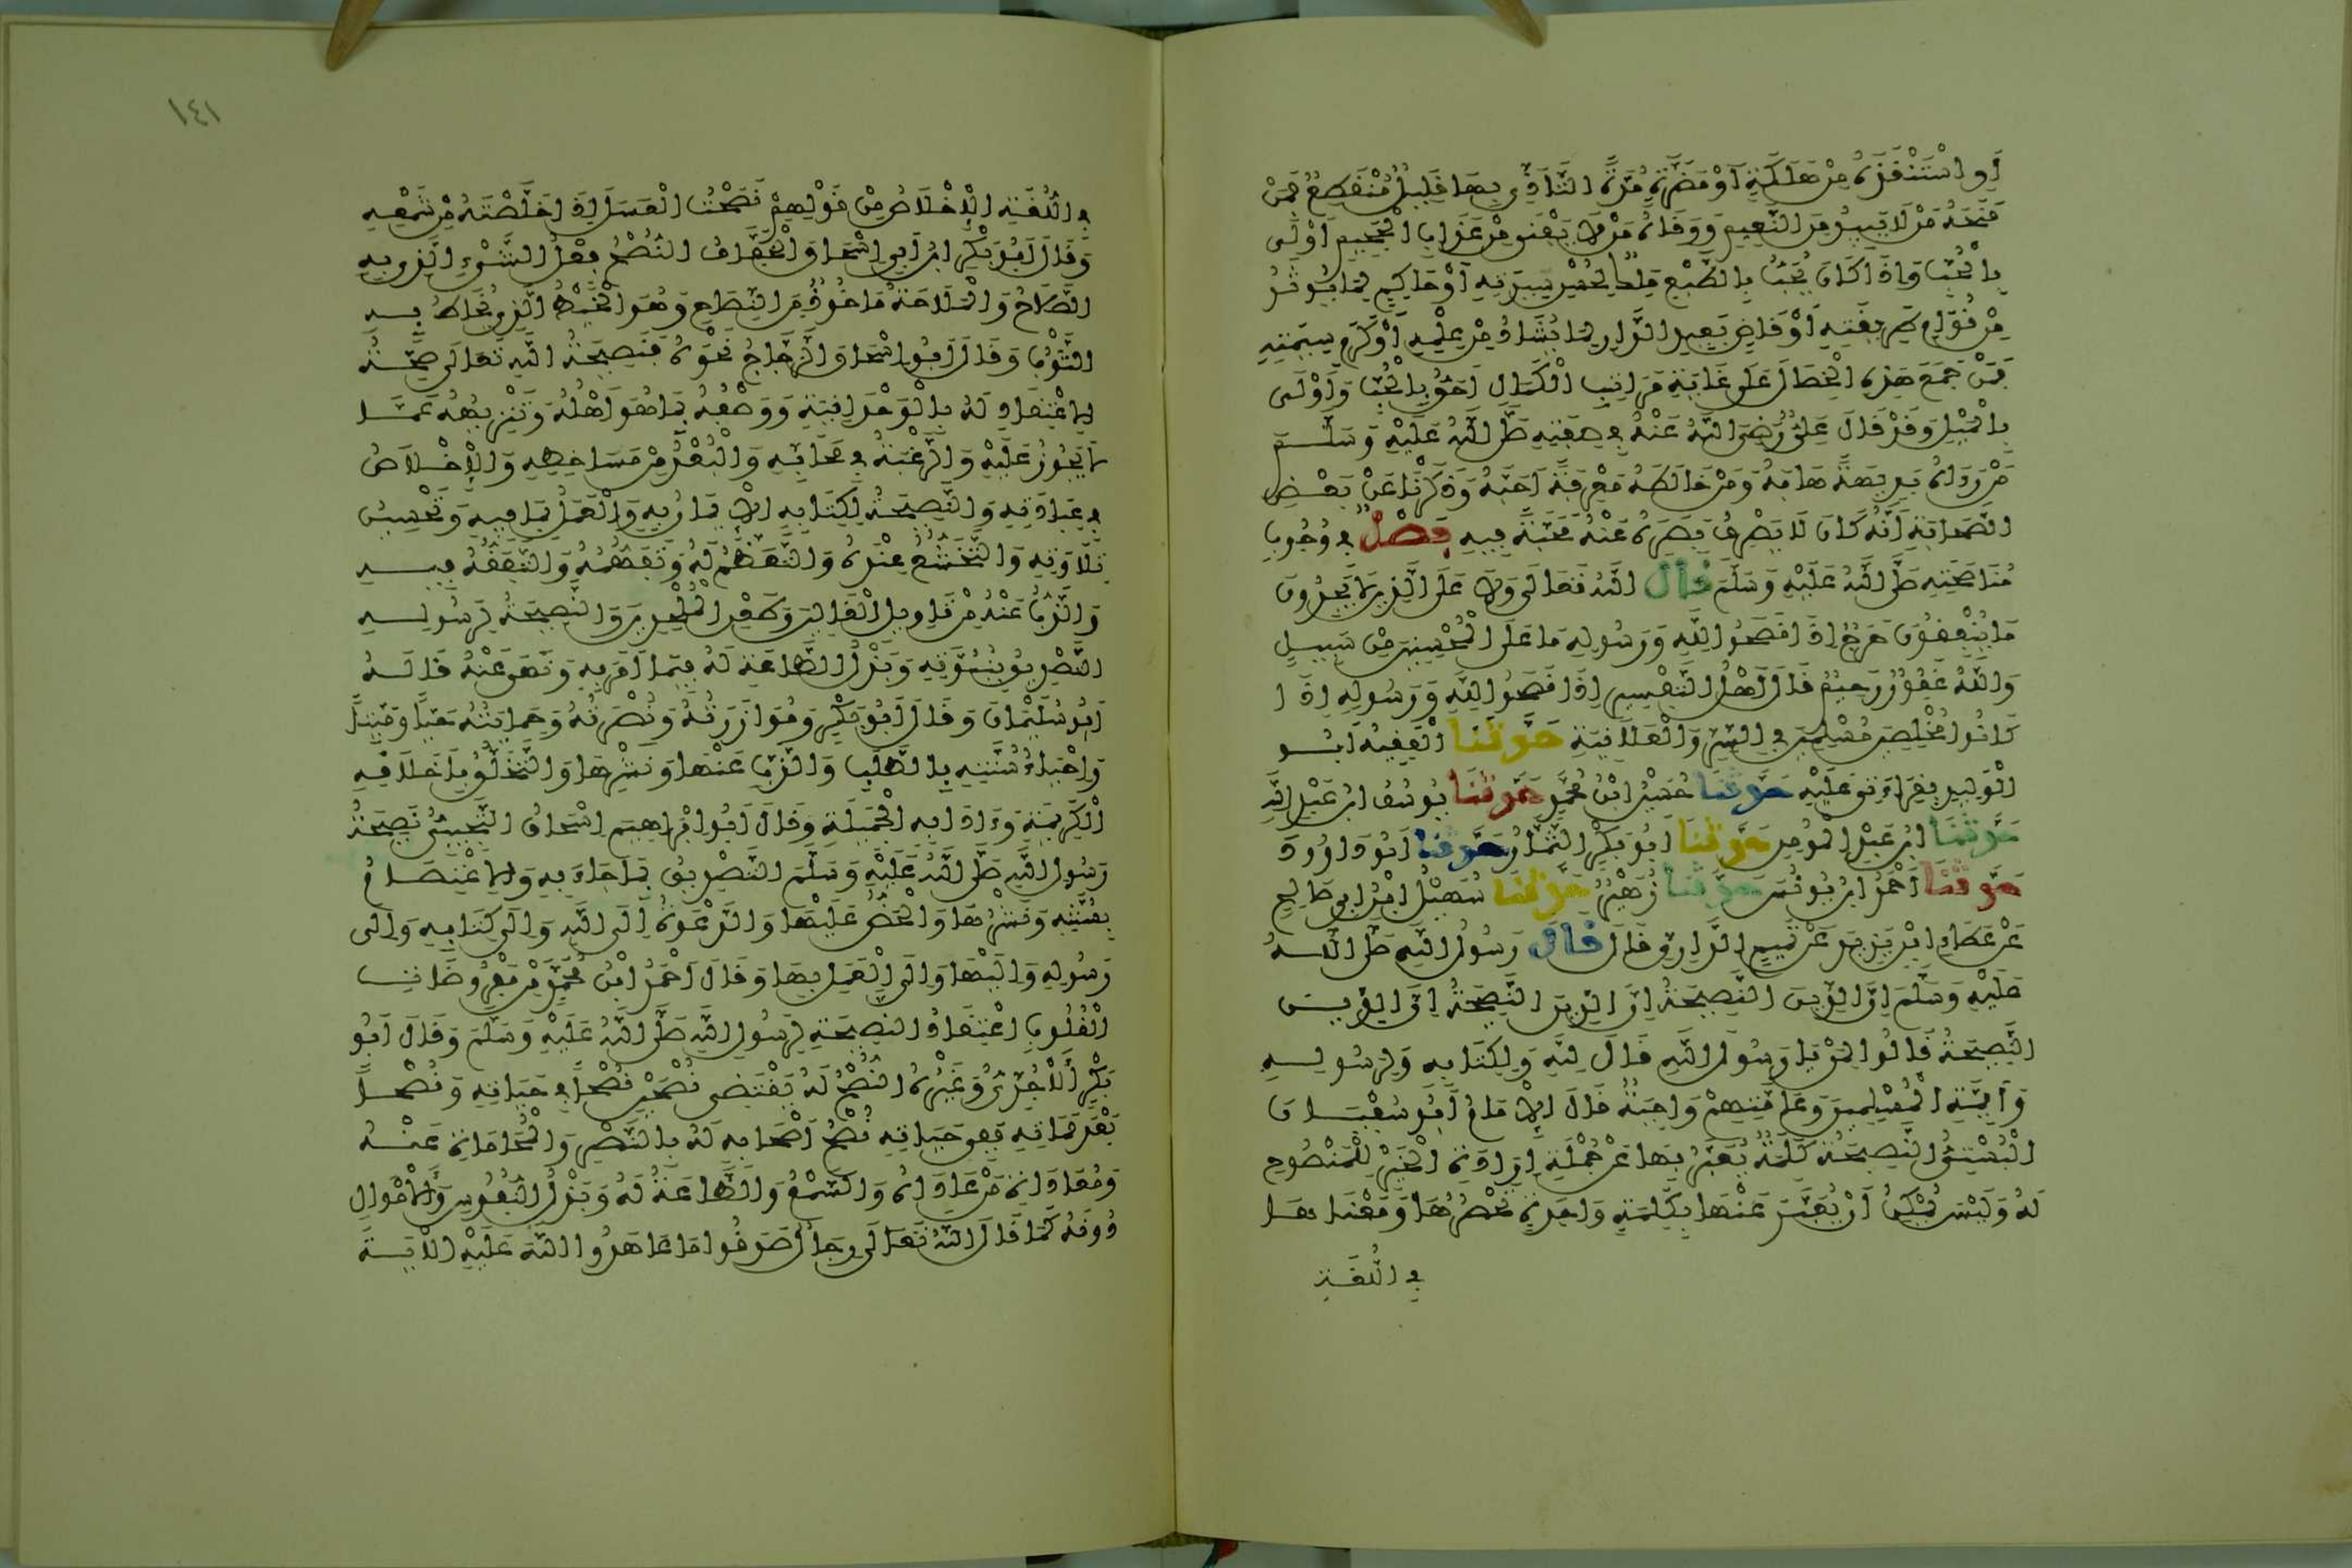 أَوِ اسْتَنْقَذَهُ مِنْ هَلَكَةٍ أَوْ مَضَرَّةٍ مُدَّةُ التَّأَذِّي بِهَا قَلِيلٌ مُنْقَطِعٌ فَمَنْ
مَنَحَهُ مَنْ لَا يَبِيدُ مِنَ النَّعِيمِ وَوَقَاهُ مَنْ لَا يَفْنَى مِنْ عَذَابِ الْجَحِيمِ أَوْلَى
بِالْحُبِّ وَإِذَا كَانَ يُحَبُّ بِالطَّبْعِ مَلِكٌ لِحُسْنِ سِيرَتِهِ أَوْ حَاكِمٌ لِمَا يُؤْثَرُ
مِنْ قِوَامِ طَرِيقَتِهِ أَوْ قَاضٍ بَعِيدُ الدَّارِ لِمَا يُشَادُ مِنْ عِلْمِهِ أَوْ كَرَمِ شِيمَتِهِ
فَمَنْ جَمَعَ هَذِهِ الْخِصَالَ عَلَى غَايَةِ مَرَاتِبِ الْكَمَالِ أَحَقُّ بِالْحُبِّ وَأَوْلَى
بِالْمَيْلِ وَقَدْ قَالَ عَلِيٌّ رَضِيَ اللَّهُ عَنْهُ فِي صِفَتِهِ صَلَّى اللَّهُ عَلَيْهِ وَسَلَّمَ
مَنْ رَءَاهُ بَدِيهَةً هَابَهُ وَمَنْ خَالَطَهُ مَعْرِفَةً أَحَبَّهُ وَذَكَرْنَا عَنْ بَعْضِ
الصَّحَابَةِ أَنَّهُ كَانَ لَا يَصْرِفُ بَصَرَهُ عَنْهُ مَحَبَّةً فِيهِ فَصْلٌ فِي وُجُوبِ
مُنَاصَحَتِهِ صَلَّى اللَّهُ عَلَيْهِ وَسَلَّمَ قَالَ اللَّهُ تَعَالَى وَلَا عَلَى الَّذِينَ لَا يَجِدُونَ
مَا يُنْفِقُونَ حَرَجٌ إِذَا نَصَحُوا لِلَّهِ وَرَسُولِهِ مَا عَلَى الْمُحْسِنِينَ مِنْ سَبِيلٍ
وَاللَّهُ غَفُورٌ رَحِيمٌ قَالَ أَهْلُ التَّفْسِيرِ إِذَا نَصَحُوا لِلَّهِ وَرَسُولِهِ إِذَا
كَانُوا مُخْلِصِينَ مُسْلِمِينَ فِي السِّرِّ وَالْعَلَانِيَةِ حَدَّثَنَا الْفَقِيهُ أَبُو
الْوَلِيدِ بِقِرَاءَتِي عَلَيْهِ حَدَّثَنَا حُسَيْنُ ابْنُ مُحَمَّدٍ حَدَّثَنَا يُوسُفُ ابْنُ عَبْدِ اللَّهِ
حَدَّثَنَا ابْنُ عَبْدِ الْمُومِنِ حَدَّثَنَا أَبُو بَكْرٍ التَّمَّارُ حَدَّثَنَا أَبُو دَاوُودَ
حَدَّثَنَا أَحْمَدُ ابْنُ يُونُسَ حَدَّثَنَا زُهَيْرٌ حَدَّثَنَا سُهَيْلُ ابْنُ أَبِي صَالِحٍ
عَنْ عَطَاءِ ابْنِ يَزِيدَ عَنْ تَمِيمٍ الدَّارِيِّ قَالَ قَالَ رَسُولُ اللَّهِ صَلَّى اللَّهُ
عَلَيْهِ وَسَلَّمَ إِنَّ الدِّينَ النَّصِيحَةُ إِنَّ الدِّينَ النَّصِيحَةُ إِنَّ الدِّينَ
النَّصِيحَةُ قَالُوا لِمَنْ يَا رَسُولَ اللَّهِ قَالَ لِلَّهِ وَلِكِتَابِهِ وَلِرَسُولِهِ
وَأَيِمَّةِ الْمُسْلِمِينَ وَعَامَّتِهِمْ وَاجِبَةٌ قَالَ الْإِمَامُ أَبُو سُفْيَانَ
الْبُسْتِيُّ النَّصِيحَةُ كَلِمَةٌ يُعَبَّرُ بِهَا عَنْ جُمْلَةِ إِرَادَةِ الْخَيْرِ لِلْمَنْصُوحِ
لَهُ وَلَيْسَ يُمْكِنُ أَنْ يُعَبَّرَ عَنْهَا بِكَلِمَةٍ وَاحِدَةٍ تَحْصُرُهَا وَمَعْنَاهَا
فِي اللُّغَةِ
١٤١
فِي اللُّغَةِ الْإِخْلَاصُ مِنْ قَوْلِهِمْ نَصَحْتُ الْعَسَلَ إِذَا خَلَّصْتَهُ مِنْ شَمْعِهِ
وَقَالَ أَبُو بَكْرٍ ابْنُ أَبِي إِسْحَاقَ الْخَفَّافُ النُّصْحُ فِعْلُ الشَّيْءِ الَّذِي بِهِ
الصَّلَاحُ وَالْمُلَاءَمَةُ مَاخُوذٌ مِنَ النِّصَاحِ وَهُوَ الْخَيْطُ الَّذِي يُخَاطُ بِهِ
الثَّوْبُ وَقَالَ أَبُو إِسْحَاقَ الزَّجَّاجُ نَحْوَهُ فَنَصِيحَةُ اللَّهِ تَعَالَى صِحَّةُ
الِاعْتِقَادِ لَهُ بِالْوَحْدَانِيَّةِ وَوَصْفُهُ بِمَا هُوَ أَهْلُهُ وَتَنْزِيهُهُ عَمَّا
لَا يَجُوزُ عَلَيْهِ وَالرَّغْبَةُ فِي مَحَابِّهِ وَالْبُعْدُ مِنْ مَسَاخِطِهِ وَالْإِخْلَاصُ
فِي عِبَادَتِهِ وَالنَّصِيحَةُ لِكِتَابِهِ الْإِيمَانُ بِهِ وَالْعَمَلُ بِمَا فِيهِ وَتَحْسِينُ
تِلَاوَتِهِ وَالتَّخَشُّعُ عِنْدَهُ وَالتَّعَظُّمُ لَهُ وَتَفَهُّمُهُ وَالتَّفَقُّهُ فِيهِ
وَالذَّبُّ عَنْهُ مِنْ تَاوِيلِ الْغَالِينَ وَطَعْنِ الْمُلْحِدِينَ وَالنَّصِيحَةُ لِرَسُولِهِ
التَّصْدِيقُ بِنُبُوَّتِهِ وَبَذْلُ الطَّاعَةِ لَهُ فِيمَا أَمَرَ بِهِ وَنَهَى عَنْهُ قَالَهُ
أَبُو سُلَيْمَانَ وَقَالَ أَبُو بَكْرٍ وَمُوَازَرَتُهُ وَنُصْرَتُهُ وَحِمَايَتُهُ حَيًّا وَمَيِّتًا
وَإِحْيَاءُ سُنَّتِهِ بِالطَّلَبِ وَالذَّبِّ عَنْهَا وَنَشْرِهَا وَالتَّخَلُّقُ بِأَخْلَاقِهِ
الْكَرِيمَةِ وَءَادَابِهِ الْجَمِيلَةِ وَقَالَ أَبُو إِبْرَاهِيمَ إِسْحَاقُ التُّجِيبِيُّ نَصِيحَةُ
رَسُولِ اللَّهِ صَلَّى اللَّهُ عَلَيْهِ وَسَلَّمَ التَّصْدِيقُ بِمَا جَاءَ بِهِ وَالِاعْتِصَامُ
بِسُنَّتِهِ وَنَشْرُهَا وَالْحَضُّ عَلَيْهَا وَالدَّعْوَةُ إِلَى اللَّهِ وَإِلَى كِتَابِهِ وَإِلَى
رَسُولِهِ وَإِلَيْهَا وَإِلَى الْعَمَلِ بِهَا وَقَالَ أَحْمَدُ ابْنُ مُحَمَّدٍ مِنْ مَفْرُوضَاتِ
الْقُلُوبِ اعْتِقَادُ النَّصِيحَةِ لِرَسُولِ اللَّهِ صَلَّى اللَّهُ عَلَيْهِ وَسَلَّمَ وَقَالَ أَبُو
بَكْرٍ الْآجُرِّيُّ وَغَيْرُهُ النُّصْحُ لَهُ يَقْتَضِي نُصْحَيْنِ نُصْحًا فِي حَيَاتِهِ وَنُصْحًا
بَعْدَ مَمَاتِهِ فَفِي حَيَاتِهِ نُصْحُ أَصْحَابِهِ لَهُ بِالنَّصْرِ وَالْمُحَامَاةِ عَنْهُ
وَمُعَادَاةِ مَنْ عَادَاهُ وَالسَّمْعُ وَالطَّاعَةُ لَهُ وَبَذْلُ النُّفُوسِ وَالْأَمْوَالِ
دُونَهُ كَمَا قَالَ اللَّهُ تَعَالَى رِجَالٌ صَدَقُوا مَا عَاهَدُوا اللَّهَ عَلَيْهِ الْآيَةَ